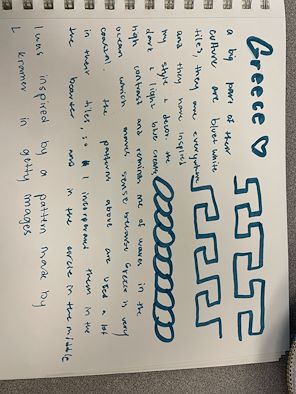 Greece ♡
a big part of their
culture are blue + white
tiles, they are everywhere
and they have inspired
my style + decor. the
dark + light blue create
high contrast and remind me of waves in the
ocean which makes sense because Greece is very
coastal. the patterns above are used a lot
in their tiles, so I incorporated them in the
the boarder and in the circle in the middle
I was inspired by a pattern made by
L kramer in getty images